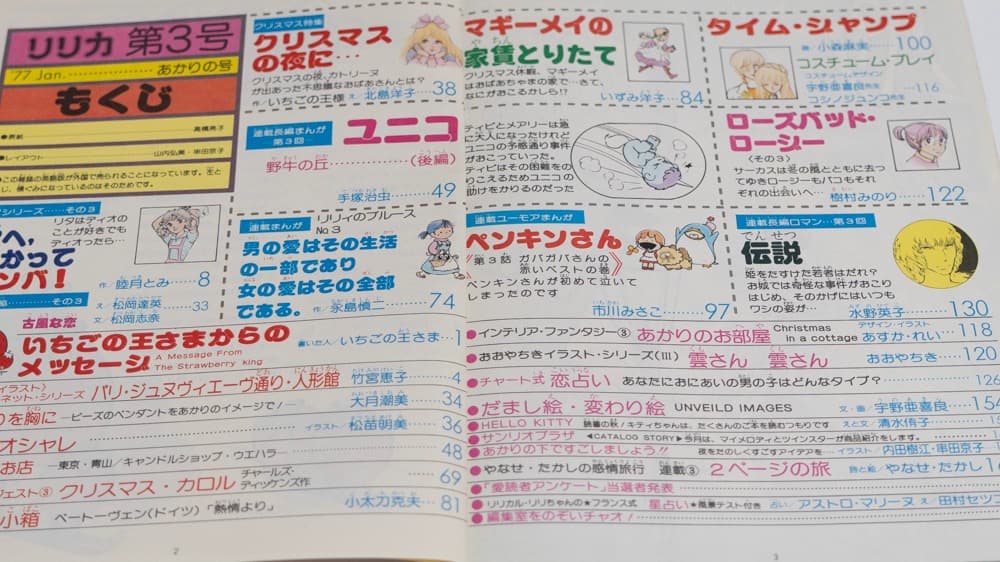 リリカ 第3号
'77 Jan. あかりの号
もくじ
●表紙 高橋亮子
●レイアウト 山内弘美・串田京子
●この雑誌の英語版が外国で売られることになっています。左と
じ、横ぐみになっているのはそのためです。
クリスマス特集
クリスマス
の夜に…
クリスマスの夜、カトリーヌ
が出あった不思議なおばあさんとは?
作/いちごの王様 え/北島洋子 38
マギーメイの
家賃とりたて
やちん
クリスマス休暇、マギーメイ
はおばあちゃまの家で…さて、
なにがおこるかしら!?
いずみ洋子 84
タイム・ジャンプ
小森麻実 100
コスチューム・プレイ
コスチュームデザイン
宇野亜喜良先生
コシノジュンコ先生 116
連載長編まんが
第3回
ユニコ
野牛の丘…………(後編)
手塚治虫 49
ティビとメアリーは急
に大人になったけれど
ユニコの予感通り事件
がおこっていた。
ティビはその困難をの
りこえるためユニコの
助けをかりるのだった
ローズバッド・
ロージー
《その3》
サーカスは冬の風とともに去っ
てゆきロージーもパコもそれ
ぞれの出会いへ…
樹村みのり 122
シリーズ……その3
リタはティオの
ことが好きでも
ティオったら…
へ、
かって
ンバ!
作・睦月とみ 8
その3
古風な恋
え/松岡達英
文/松岡志奈 33
連載まんが
リリィのブルース
No3
男の愛はその生活
の一部であり
女の愛はその全部
である。
作・永島慎二 74
連載ユーモアまんが
ペンキンさん
《第3話 ガバガバさんの
赤いベストの巻》
ペンキンさんが初めて泣いて
しまったのです
市川みさこ 97
連載長編ロマン・第3回
でんせつ
伝説
姫をたすけた若者はだれ?
お城では奇怪な事件がおこり
はじめ、そのかげにはいつも
ワシの姿が…
水野英子 130
いちごの王さまからの
メッセージ
A Message From
The Strawberry king
書いた人/いちごの王さま 1
イラスト〉
ネット・シリーズ パリ・ジュヌヴィエーヴ通り・人形館 竹宮恵子 4
りを胸に —ビーズのペンダントをあかりのイメージで!— 大月潮美 34
オシャレ イラスト/松苗明美 36
お店 —東京・青山/キャンドルショップ・ウエハラ— 48
ジェスト③ クリスマス・カロル チャールズ・
ディッケンズ作 69
小箱 ベートーヴェン(ドイツ)「熱情より」 小太刀克夫 81
●インテリア・ファンタジー③ あかりのお部屋 Christmas
in a cottage デザイン・イラスト
あすか・れい 118
●おおやちきイラスト・シリーズ(III) 雲さん 雲さん おおやちき 120
●チャート式 恋占い あなたにおにあいの男の子はどんなタイプ? 126
●だまし絵・変わり絵 UNVEILD IMAGES 文・画/宇野亜喜良 154
●HELLO KITTY 読書の秋!キティちゃんは、たくさんのご本を読むつもりです え と文/清水侑子
●サンリオプラザ ◀CATALOG STORY▶今月は、マイメロディとツインスターが商品紹介をします。
●あかりの下ですごしましょう!! 夜をたのしくすごすアイデアを… イラスト/内田樹江・串田京子
●やなせ・たかしの感情旅行 連載③ 2ページの旅 詩と絵/やなせ・たかし
●「愛読者アンケート」当選者発表
●リリカル・リリちゃんの★フランス式 星占い★風景テスト付き 占い/アストロ・マリーヌ え/田村セツコ
●編集室をのぞいチャオ!
2
3